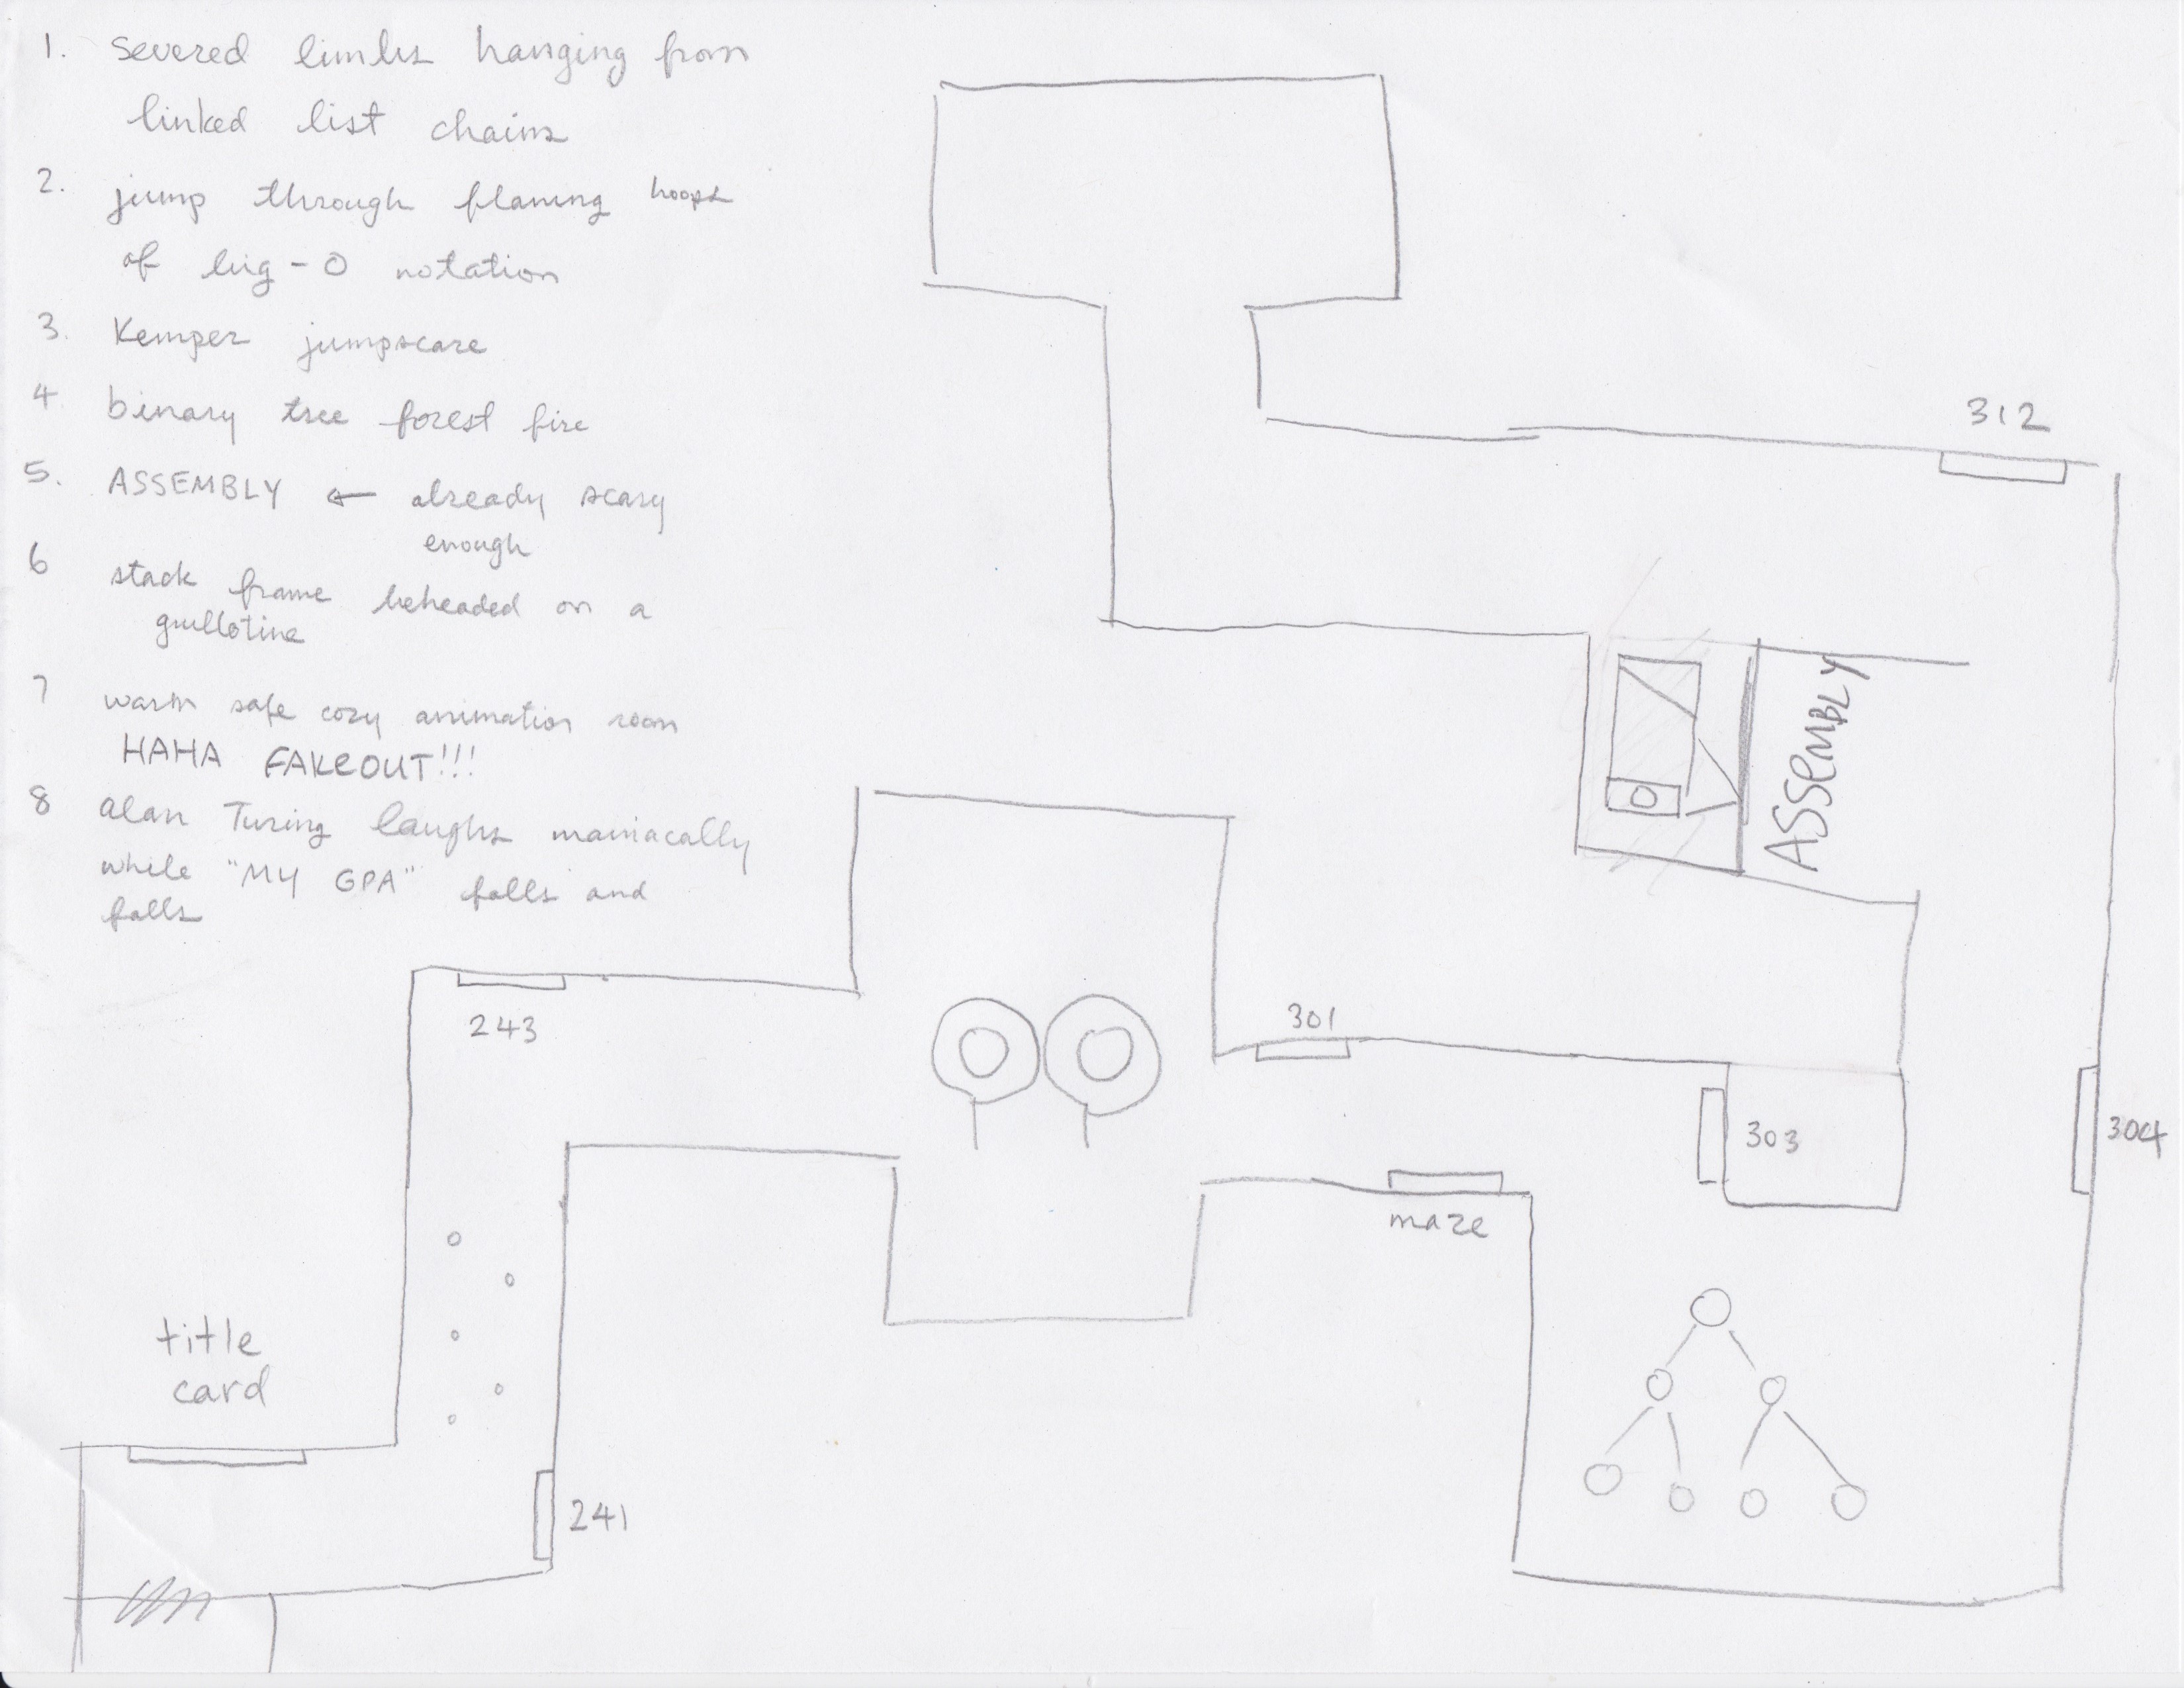 1. severed limbs hanging from
linked list chains
2. jump through flaming hoops
of big-O notation
3. Kemper jumpscare
4. binary tree forest fire
5. ASSEMBLY ← already scary
enough
6 stack frame beheaded on a
guillotine
7 warm safe cozy animation room
HAHA FAKEOUT!!!
8 alan Turing laughs maniacally
while "MY GPA" falls and
falls
312
ASSEMBLY
243
301
303
304
maze
title
card
241